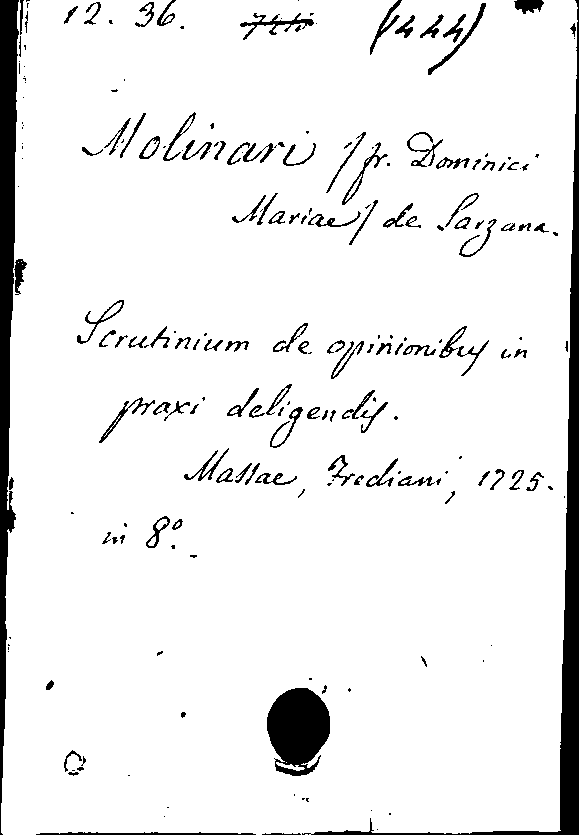 12. 36. (1444)
Molinari / fr. Dominici
Mariae / de Sarzana.
Scrutinium de opinionibus in
praxi deligendis.
Massae, Frediani, 1725.
in 8º.